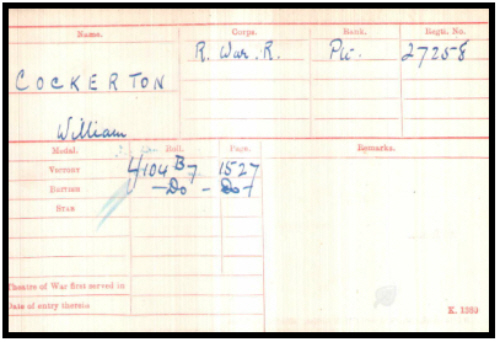 Name. Corps. Rank. Regtl. No.
R. War. R. Pte. 27258
COCKERTON
William
Medal. Roll. Page. Remarks.
VICTORY 4/104 B7 1527
BRITISH -Do- -Do-
STAR
Theatre of War first served in
Date of entry therein
K. 1380